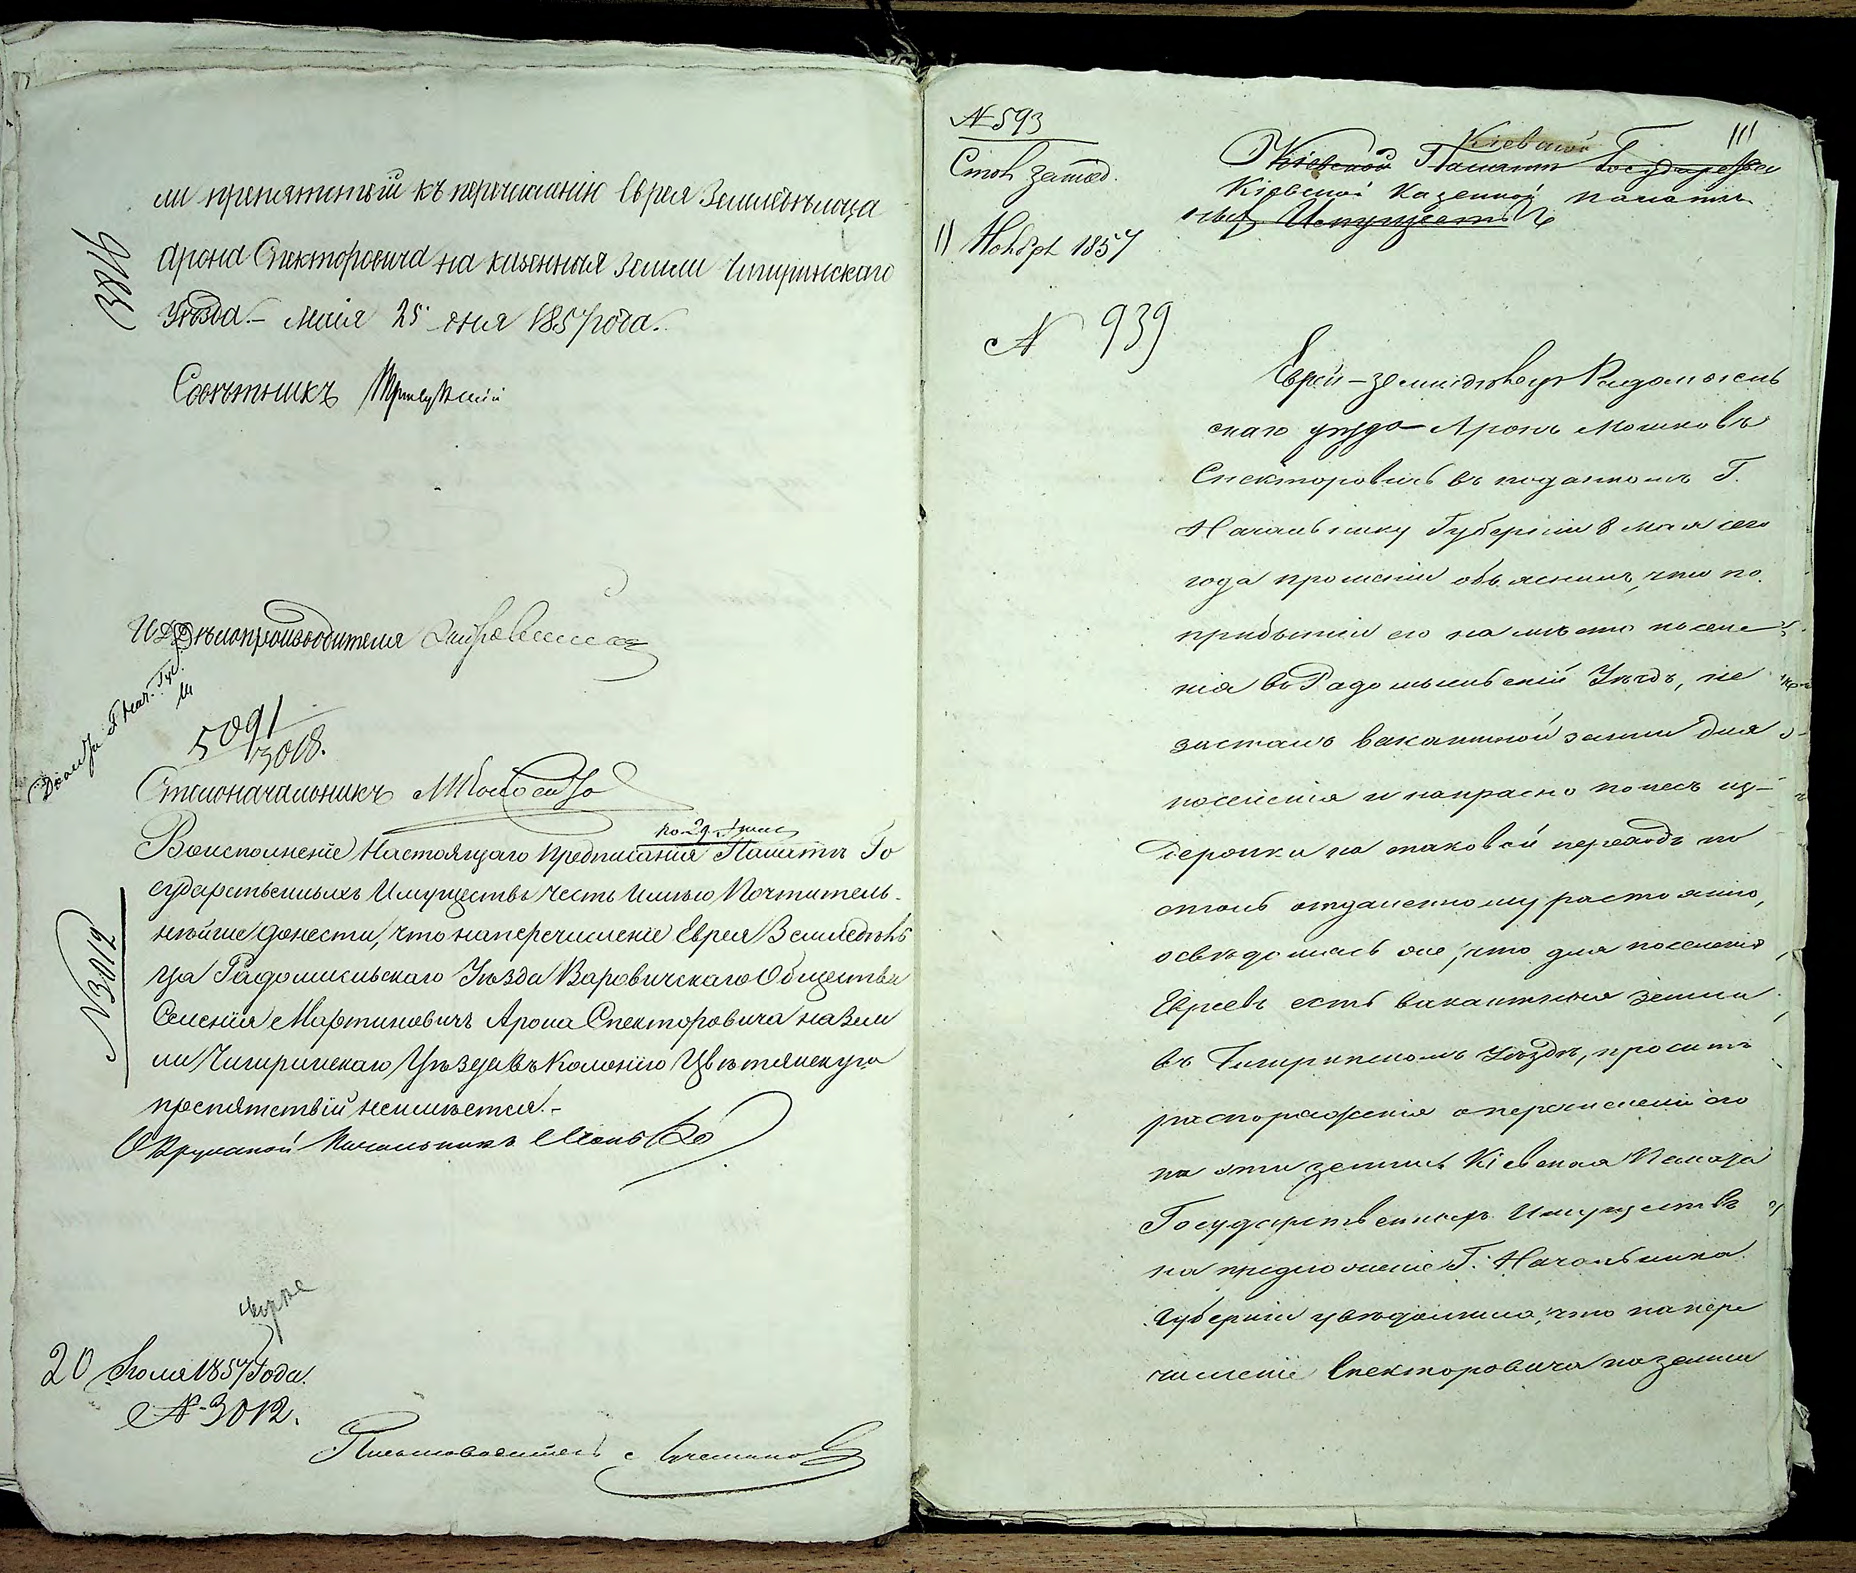 ли препятствій къ перечисленію Еврея Землевѣльца
Арона Спекторовича на казенныя земли Чигиринскаго
Уѣзда. – Маія 25 дня 1857 года.
Совѣтникъ
И. Д. Дѣлопроизводителя
5091
3018.
Столоначальникъ
Во исполненіе Настоящаго Предписанія Палаты Го
сударственныхъ Имуществъ честь имѣю Почтитель-
нѣйше донести, что на перечисленіе Еврея Земледѣль
ца Радомысльскаго Уѣзда Варовичскаго Общества
Селенія Мартиновичъ Арона Спекторовича на Зем
ли Чигиринскаго Уѣзда въ Колонію Цвѣтянскую
препятствій неимѣется. –
Окружной Начальникъ
№ 3012
20 Іюля 1857 Года.
№ 3012.
Письмоводитель
№ 593
Стол
11 Ноября 1857
№ 939
111
Кіевской
Кіевской Палаты Государствен
Кіевской Казенной Палаты
Имуществъ
Еврей – земледѣлецъ Радомысль
скаго уѣзда Аронъ Мошковъ
Спекторовичъ въ поданномъ Г.
Начальнику Губерніи 8 мая сего
года прошеніи объяснилъ, что по
прибытіи его на мѣсто поселе
нія въ Радомысльскій Уѣздъ, не
засталъ вакантной земли для
поселенія и напрасно понесъ из–
держки на таковой переходъ по
столь отдаленному растоянію,
освѣдомясь же, что для поселенія
Евреевъ есть вакантныя земли
въ Чигиринскомъ Уѣздѣ, проситъ
распоряженія о перечисленіи его
на эти земли. Кіевская Палата
Государственныхъ Имуществъ
на предложеніе Г. Начальника
Губерніи увѣдомила, что на пере
численіе Спекторовича на земли